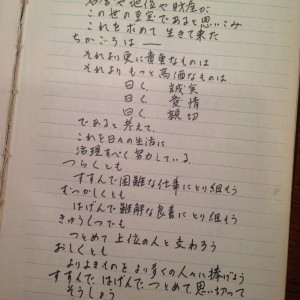 名誉や地位や財産が
この世の至宝であると思いこみ
これを求めて生きて来た
ちかごろは——
それより更に貴重なものは
それよりもっと高価なものは
曰く 誠実
曰く 愛情
曰く 親切
であると考えて、
これを日々の生活に
活現すべく努力している.
つらくとも
すすんで困難な仕事にとり組もう
むつかしくとも
はげんで難解な良書にとり組もう
きゅうくつでも
つとめて上位の人と交わろう
おしくとも
よりよきものをより多くの人々に捧げよう
すすんで、はげんで、つとめて、思い切って
そうしよう